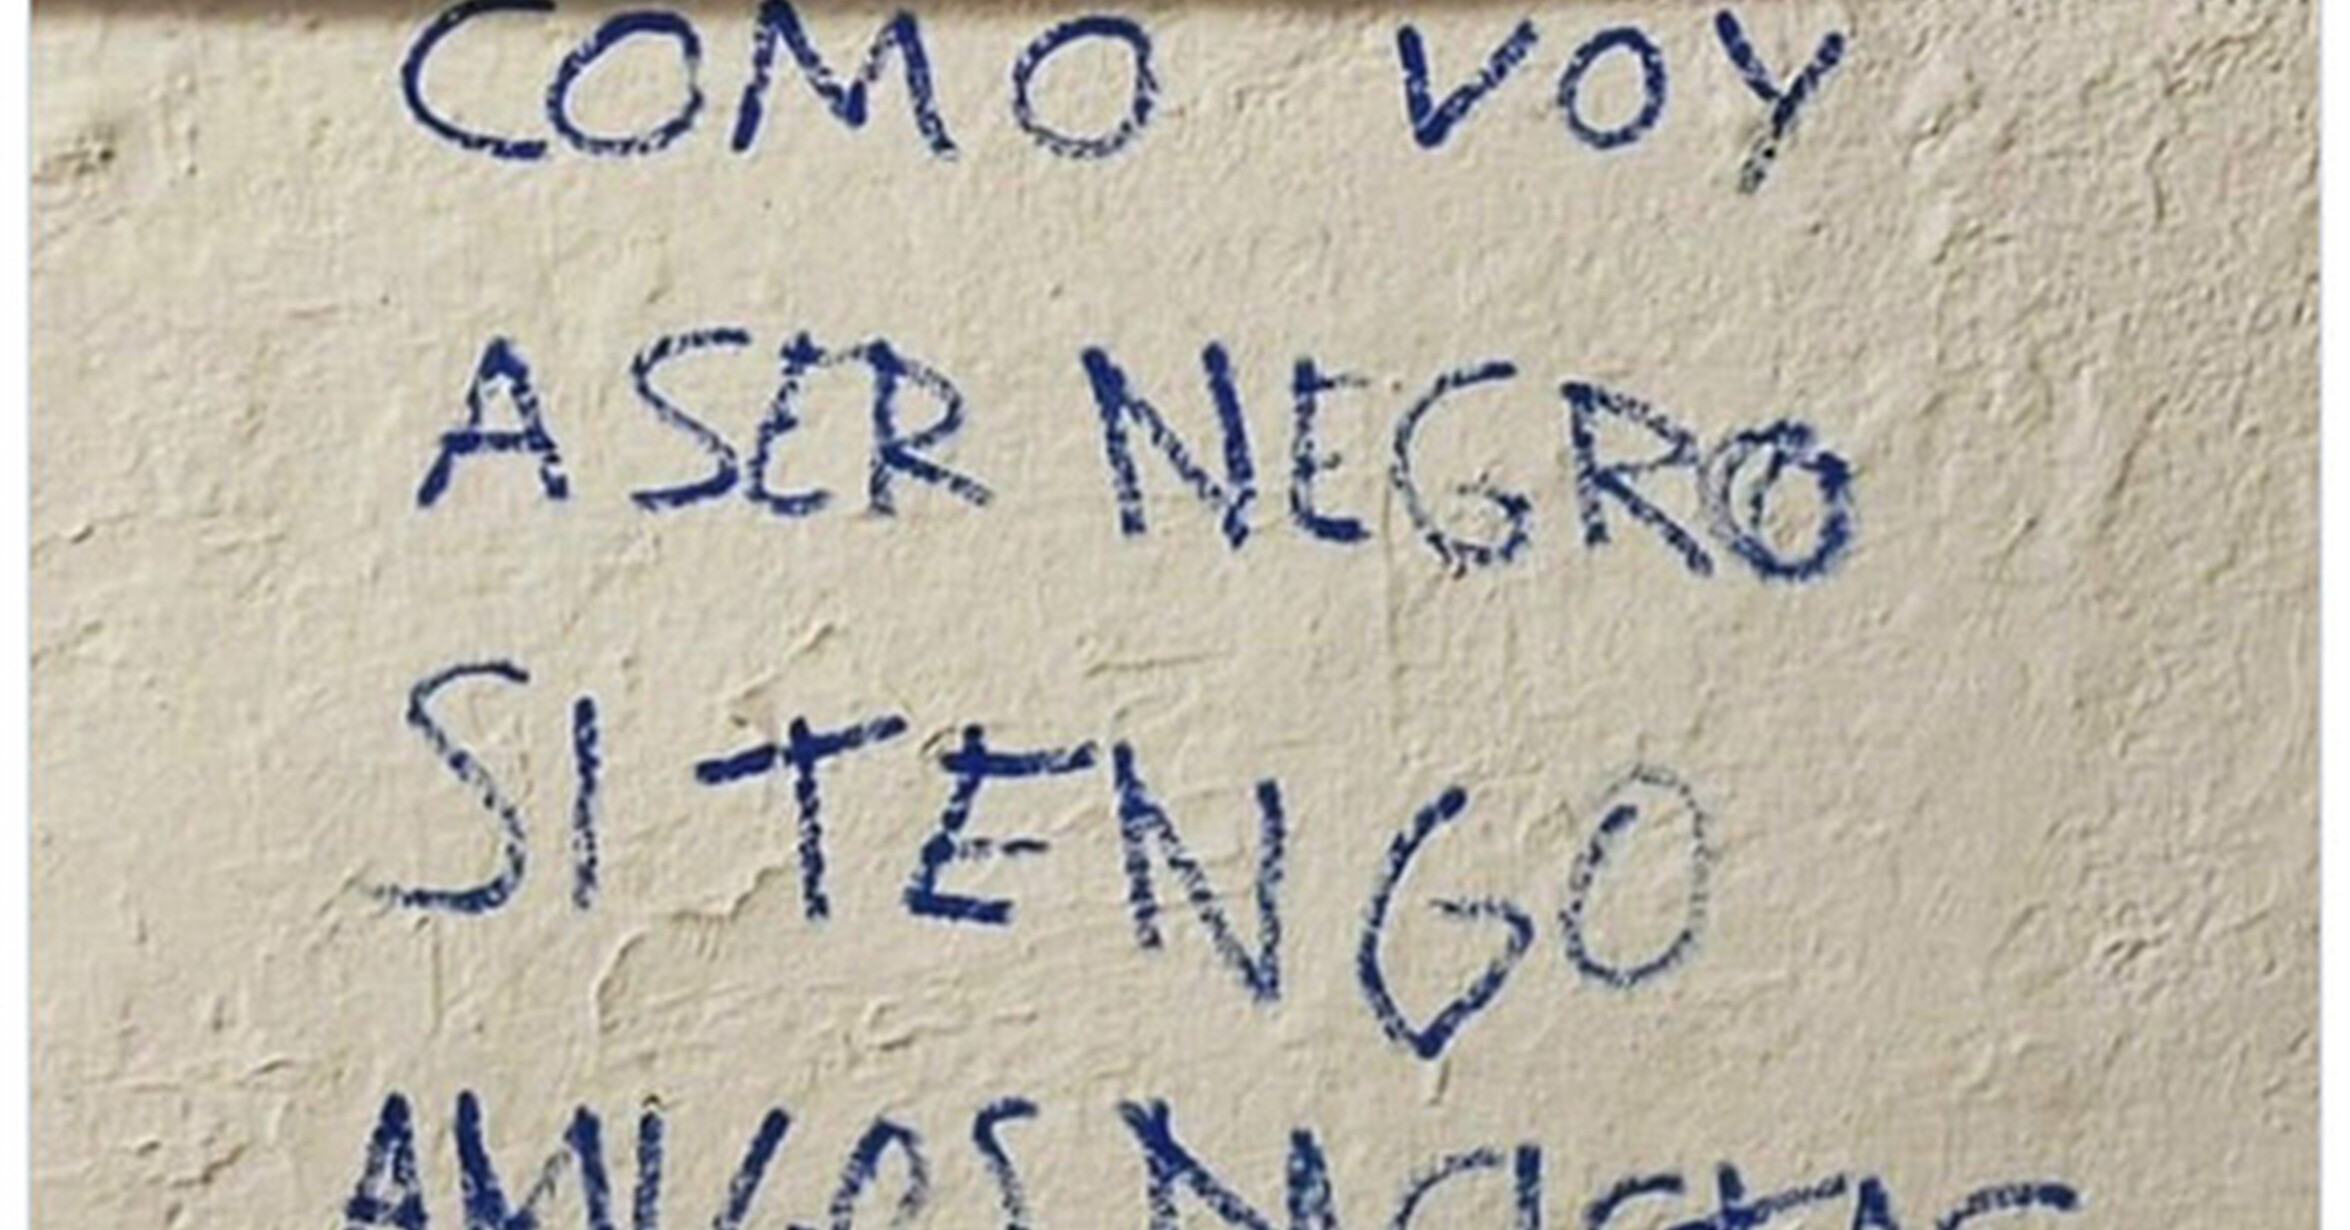 COMO VOY
A SER NEGRO
SI TENGO
AMIGOS